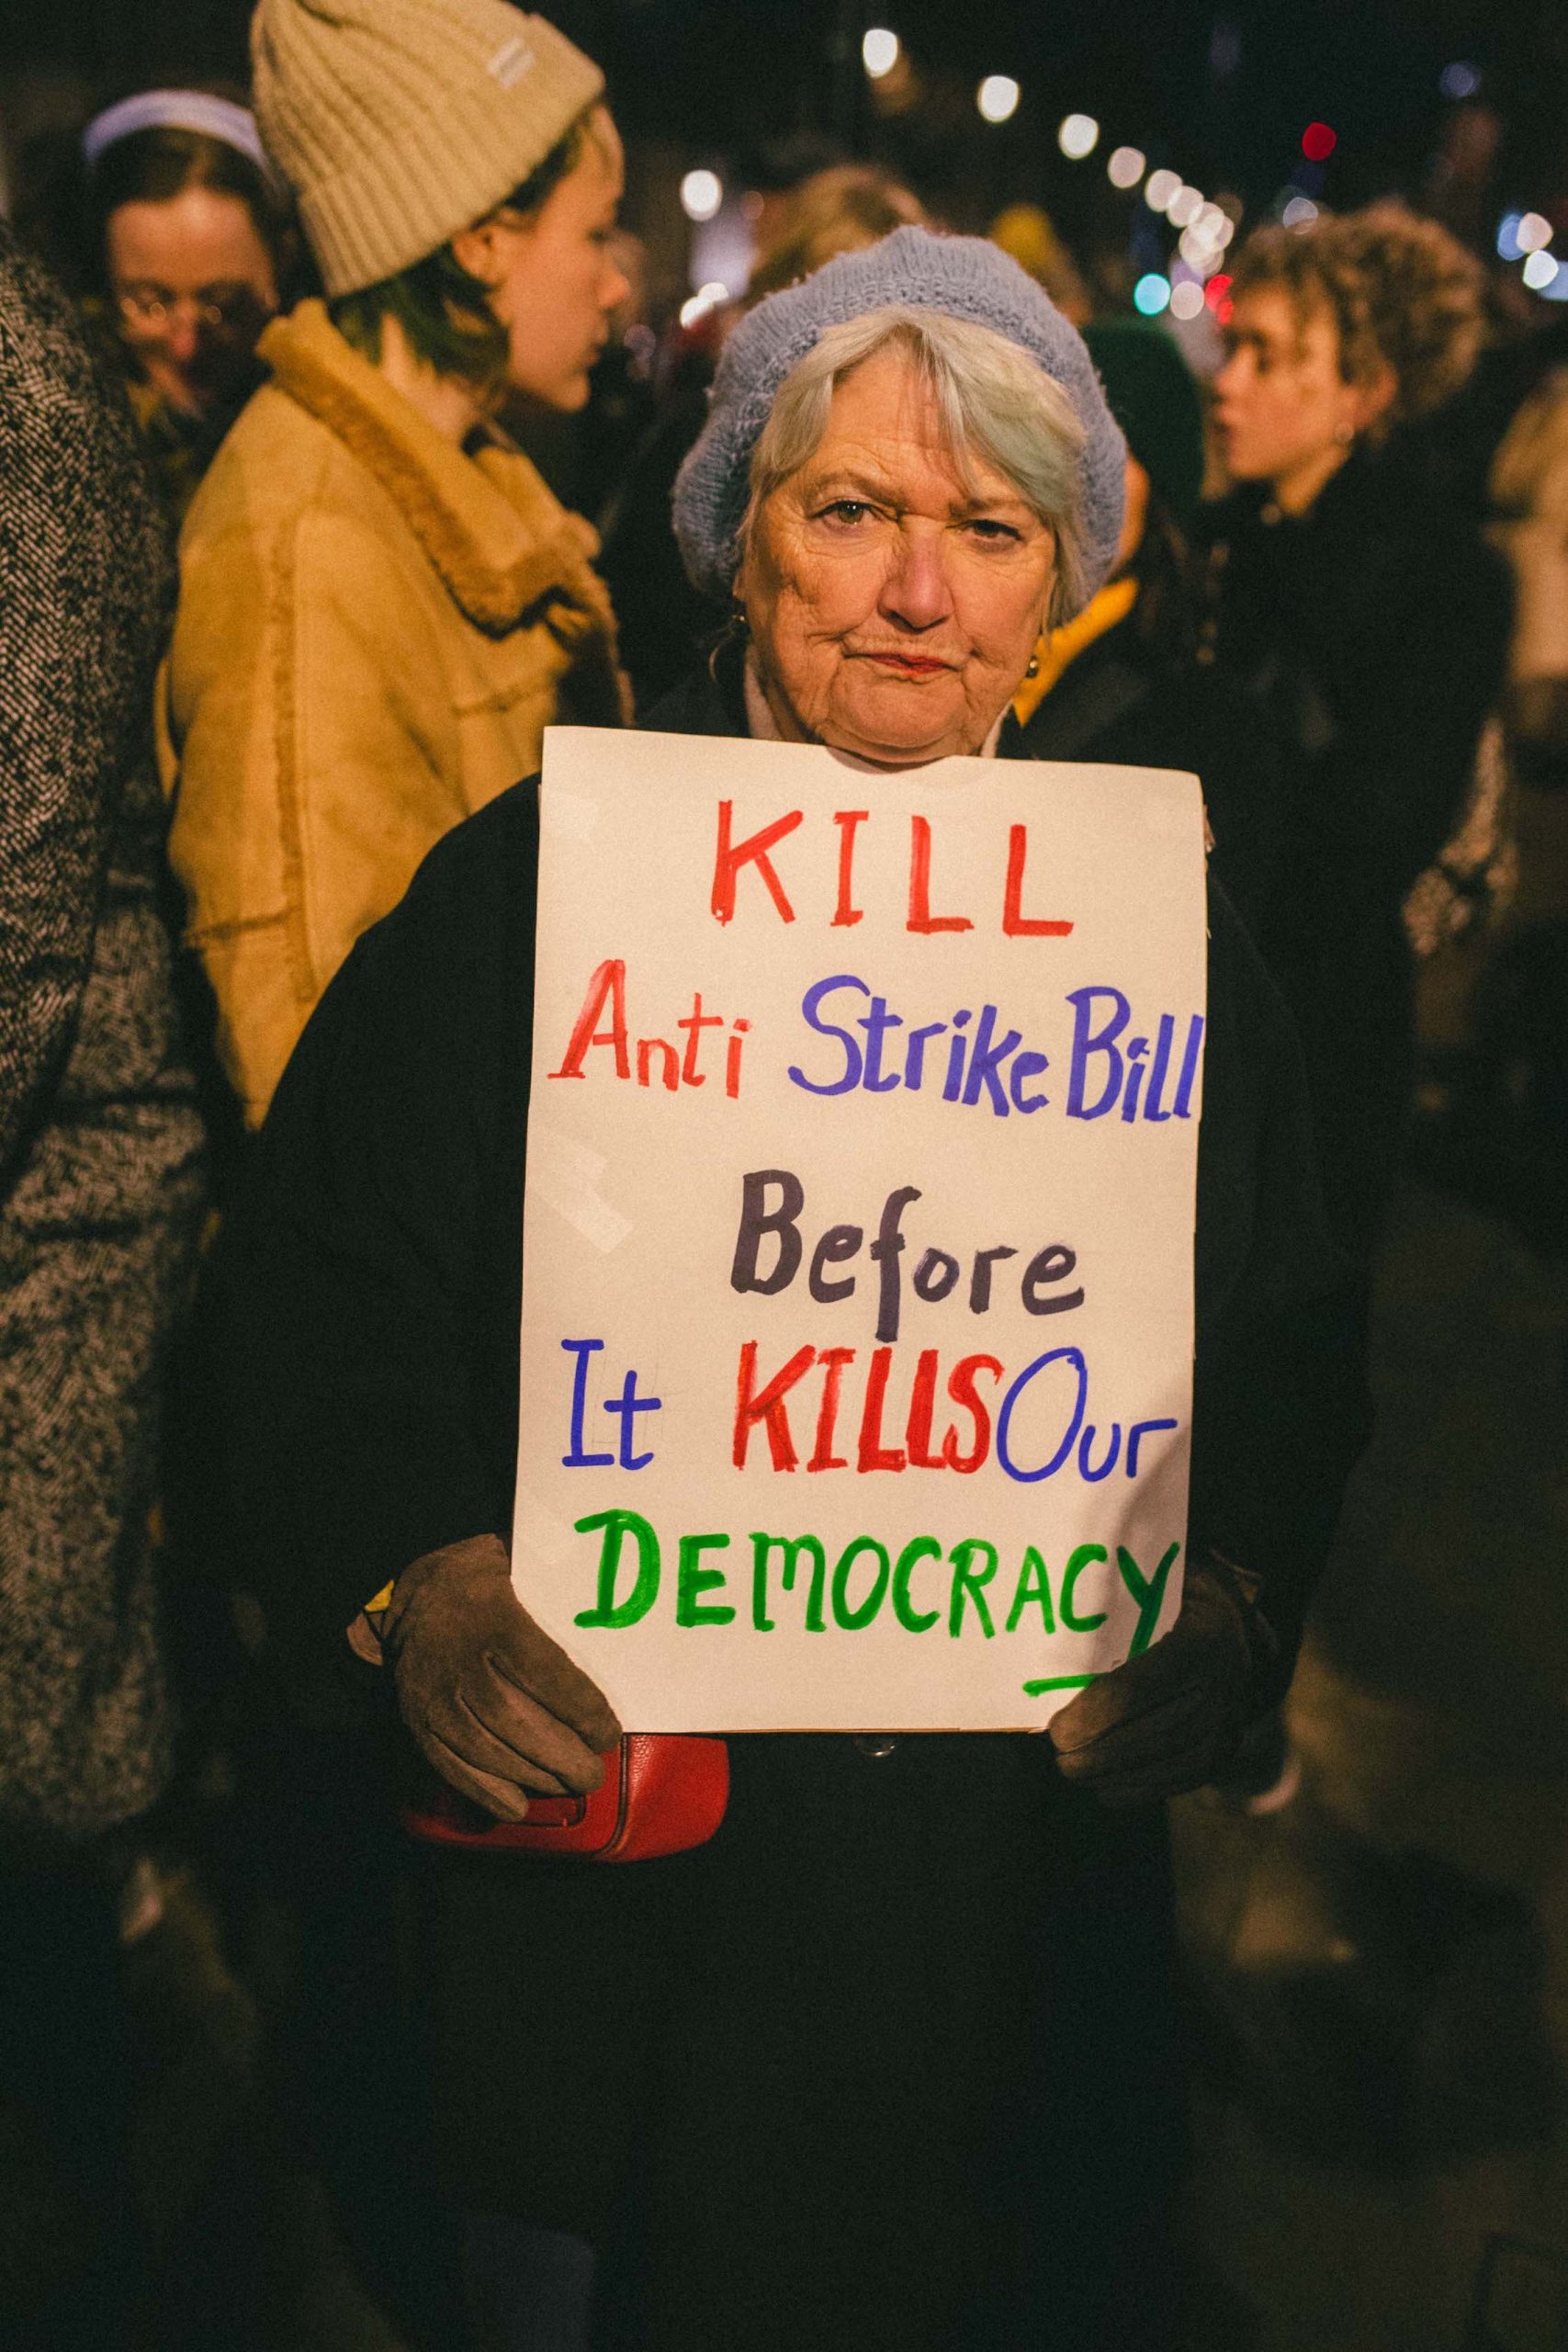 KILL
Anti Strike Bill
Before
It KILLS Our
DEMOCRACY